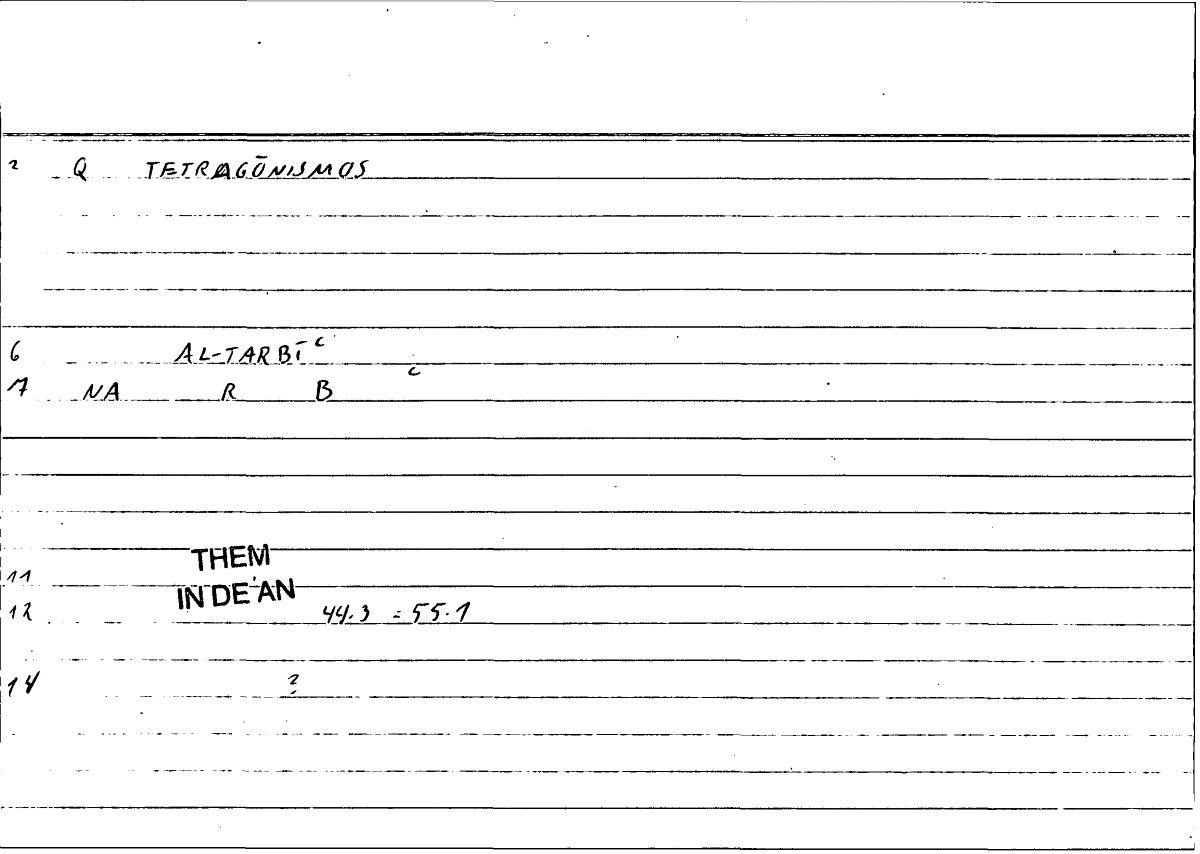 2 Q TETRAGŌNISMOS
6 AL-TARBĪʿ
7 NA R B ʿ
THEM
11
IN DE AN
12 44.3 = 55.1
14 ?